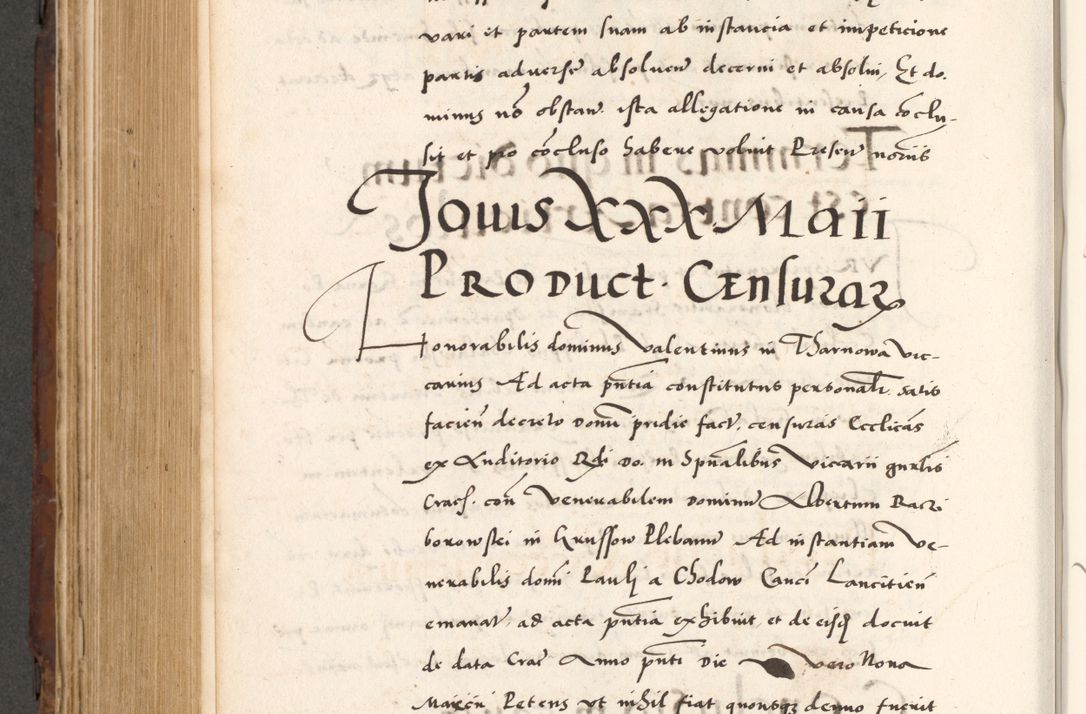 vari et partem suam ab instancia et impeticione
partis adverse absoluen̄ decerni et absolui, Et do.
minus no͂ obstan̄. ista allegatione in causa co͂clu-
sit et pro co͂cluso habere voluit Presen̄ notariis
Jouis XXX Maii
Product. Censurarꝝ
Honorabilis dominus Valentinus in Tharnowa vic-
carius Ad acta pn̄tia constitutus personalr̄. satis
facien̄ decreto domī pridie fact̄. censuras Ecclīcas
ex Auditorio Rdi do. in Spūalibus Vicarii gn̄rlis
Crac̄. con̄ Venerabilem dominū Albertum Raczi
borowski in Krussow Plebanū Ad instantiam Ve-
nerabilis domī Pauli a Chodow Canci Lancitien̄
emanat̄. ad acta pn̄tia exhibuit, et de eisdꝫ docuit
de data Crac̄ Anno pn̄ti Die vero Nona
Maii Petens vt nihil fiat quousqꝫ denuo fuerit